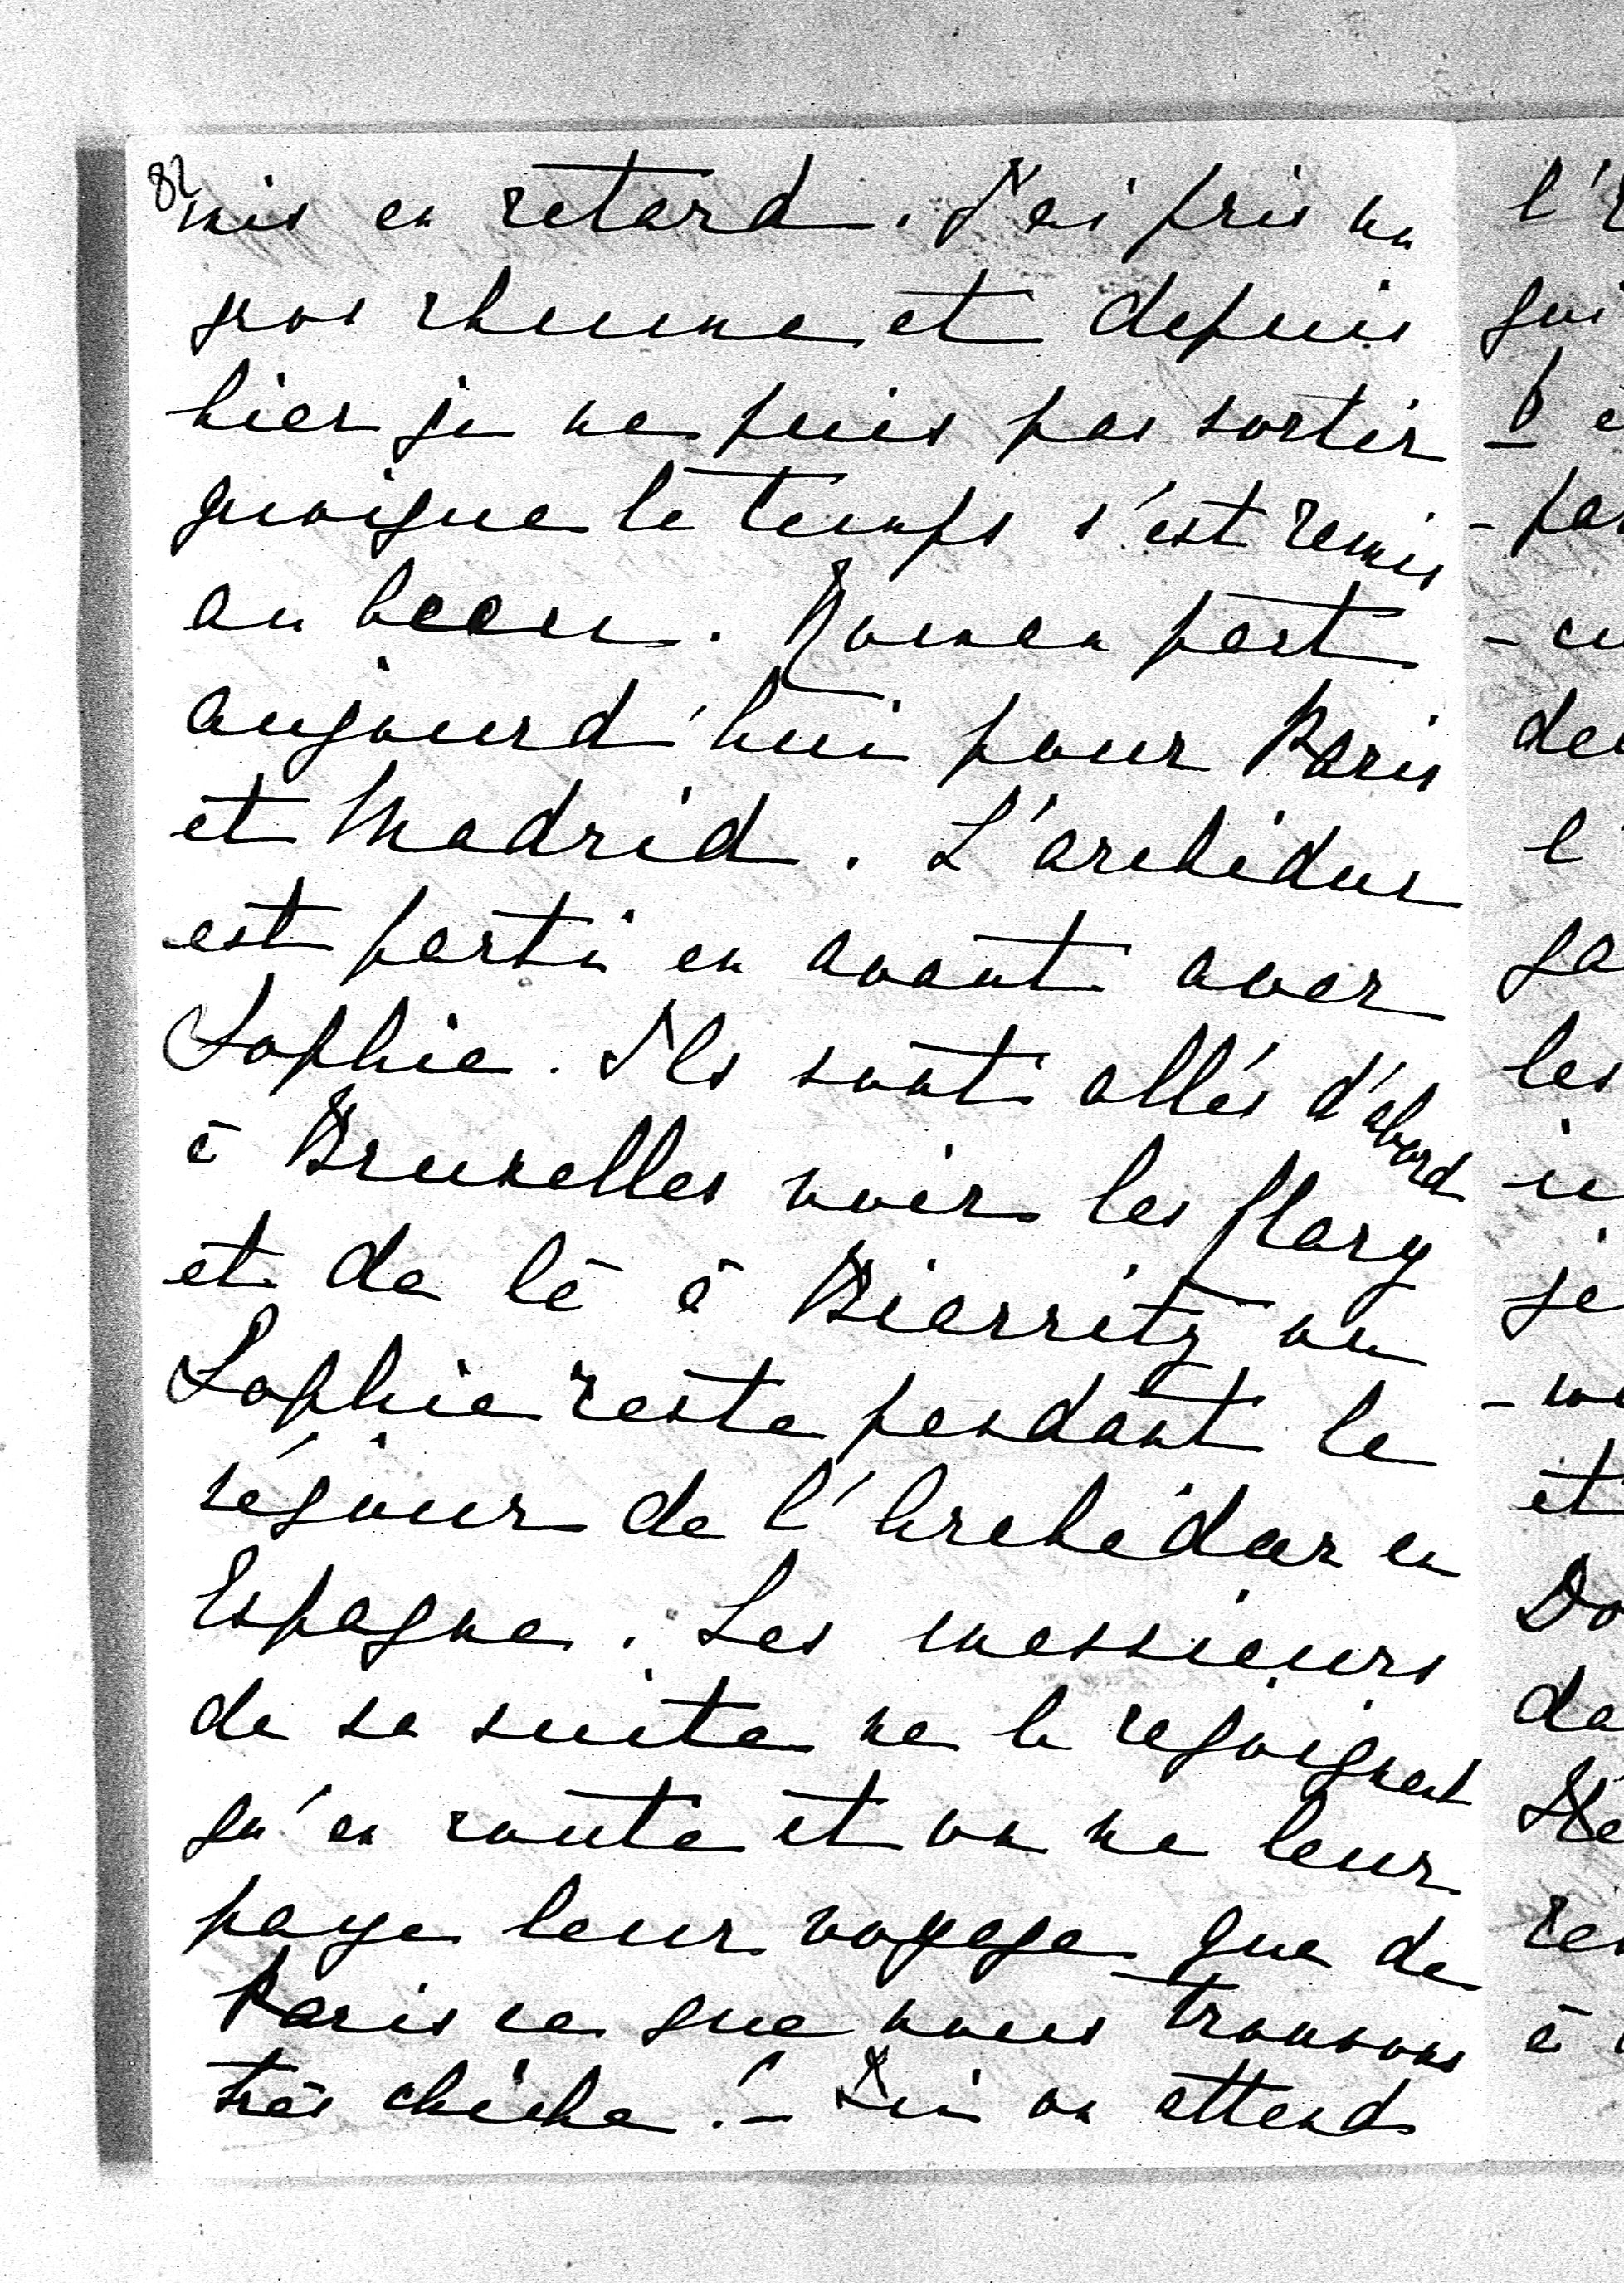 82
mis en retard. J'ai pris un
gros rhume et depuis
hier je ne puis pas sortir
quoique le temps s'est remis
au beau. part
aujourd'hui pour Paris
et Madrid. L'archiduc
est parti en avant avec
Sophie. Ils sont allés d'abord
à Bruxelles voir les flary
et de là à Biarritz où
Sophie reste pendant le
séjour de l'Archiduc en
Espagne. Les messieurs
de sa suite ne le rejoignent
qu'en route et on ne leur
paye leur voyage que de
Paris ce que nous trouvons
très chiche! – Ici on attend
l'
qui
pas
- cu
de
l'
ga
les
je
et
Do
da
re
à